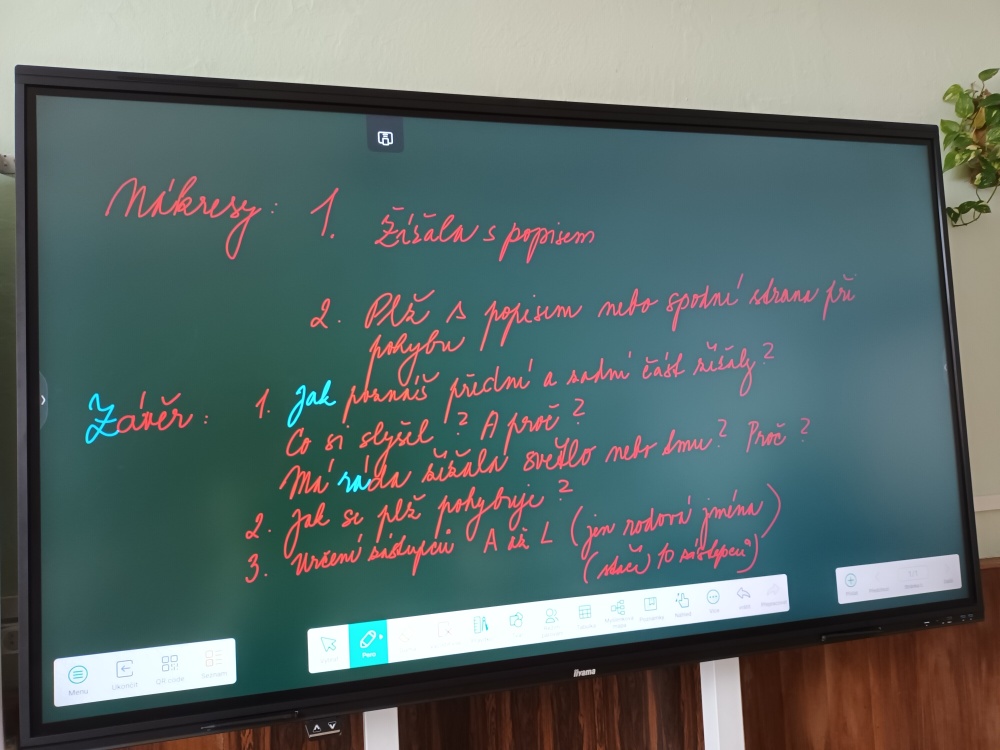 Nákresy: 1. Žížala s popisem
2. Plž s popisem nebo spodní strana při
pohybu
Závěr: 1. Jak poznáš přední a zadní část žížaly?
Co si slyšel? A proč?
Má ráda žížala světlo nebo tmu? Proč?
2. Jak se plž pohybuje?
3. Určení zástupců A až L (jen rodová jména)
(stačí 10 zástupců)
Menu
Ukončit
QR code
Seznam
Pero
Tabulka
Více
Vrátit
Přidat
iiyama